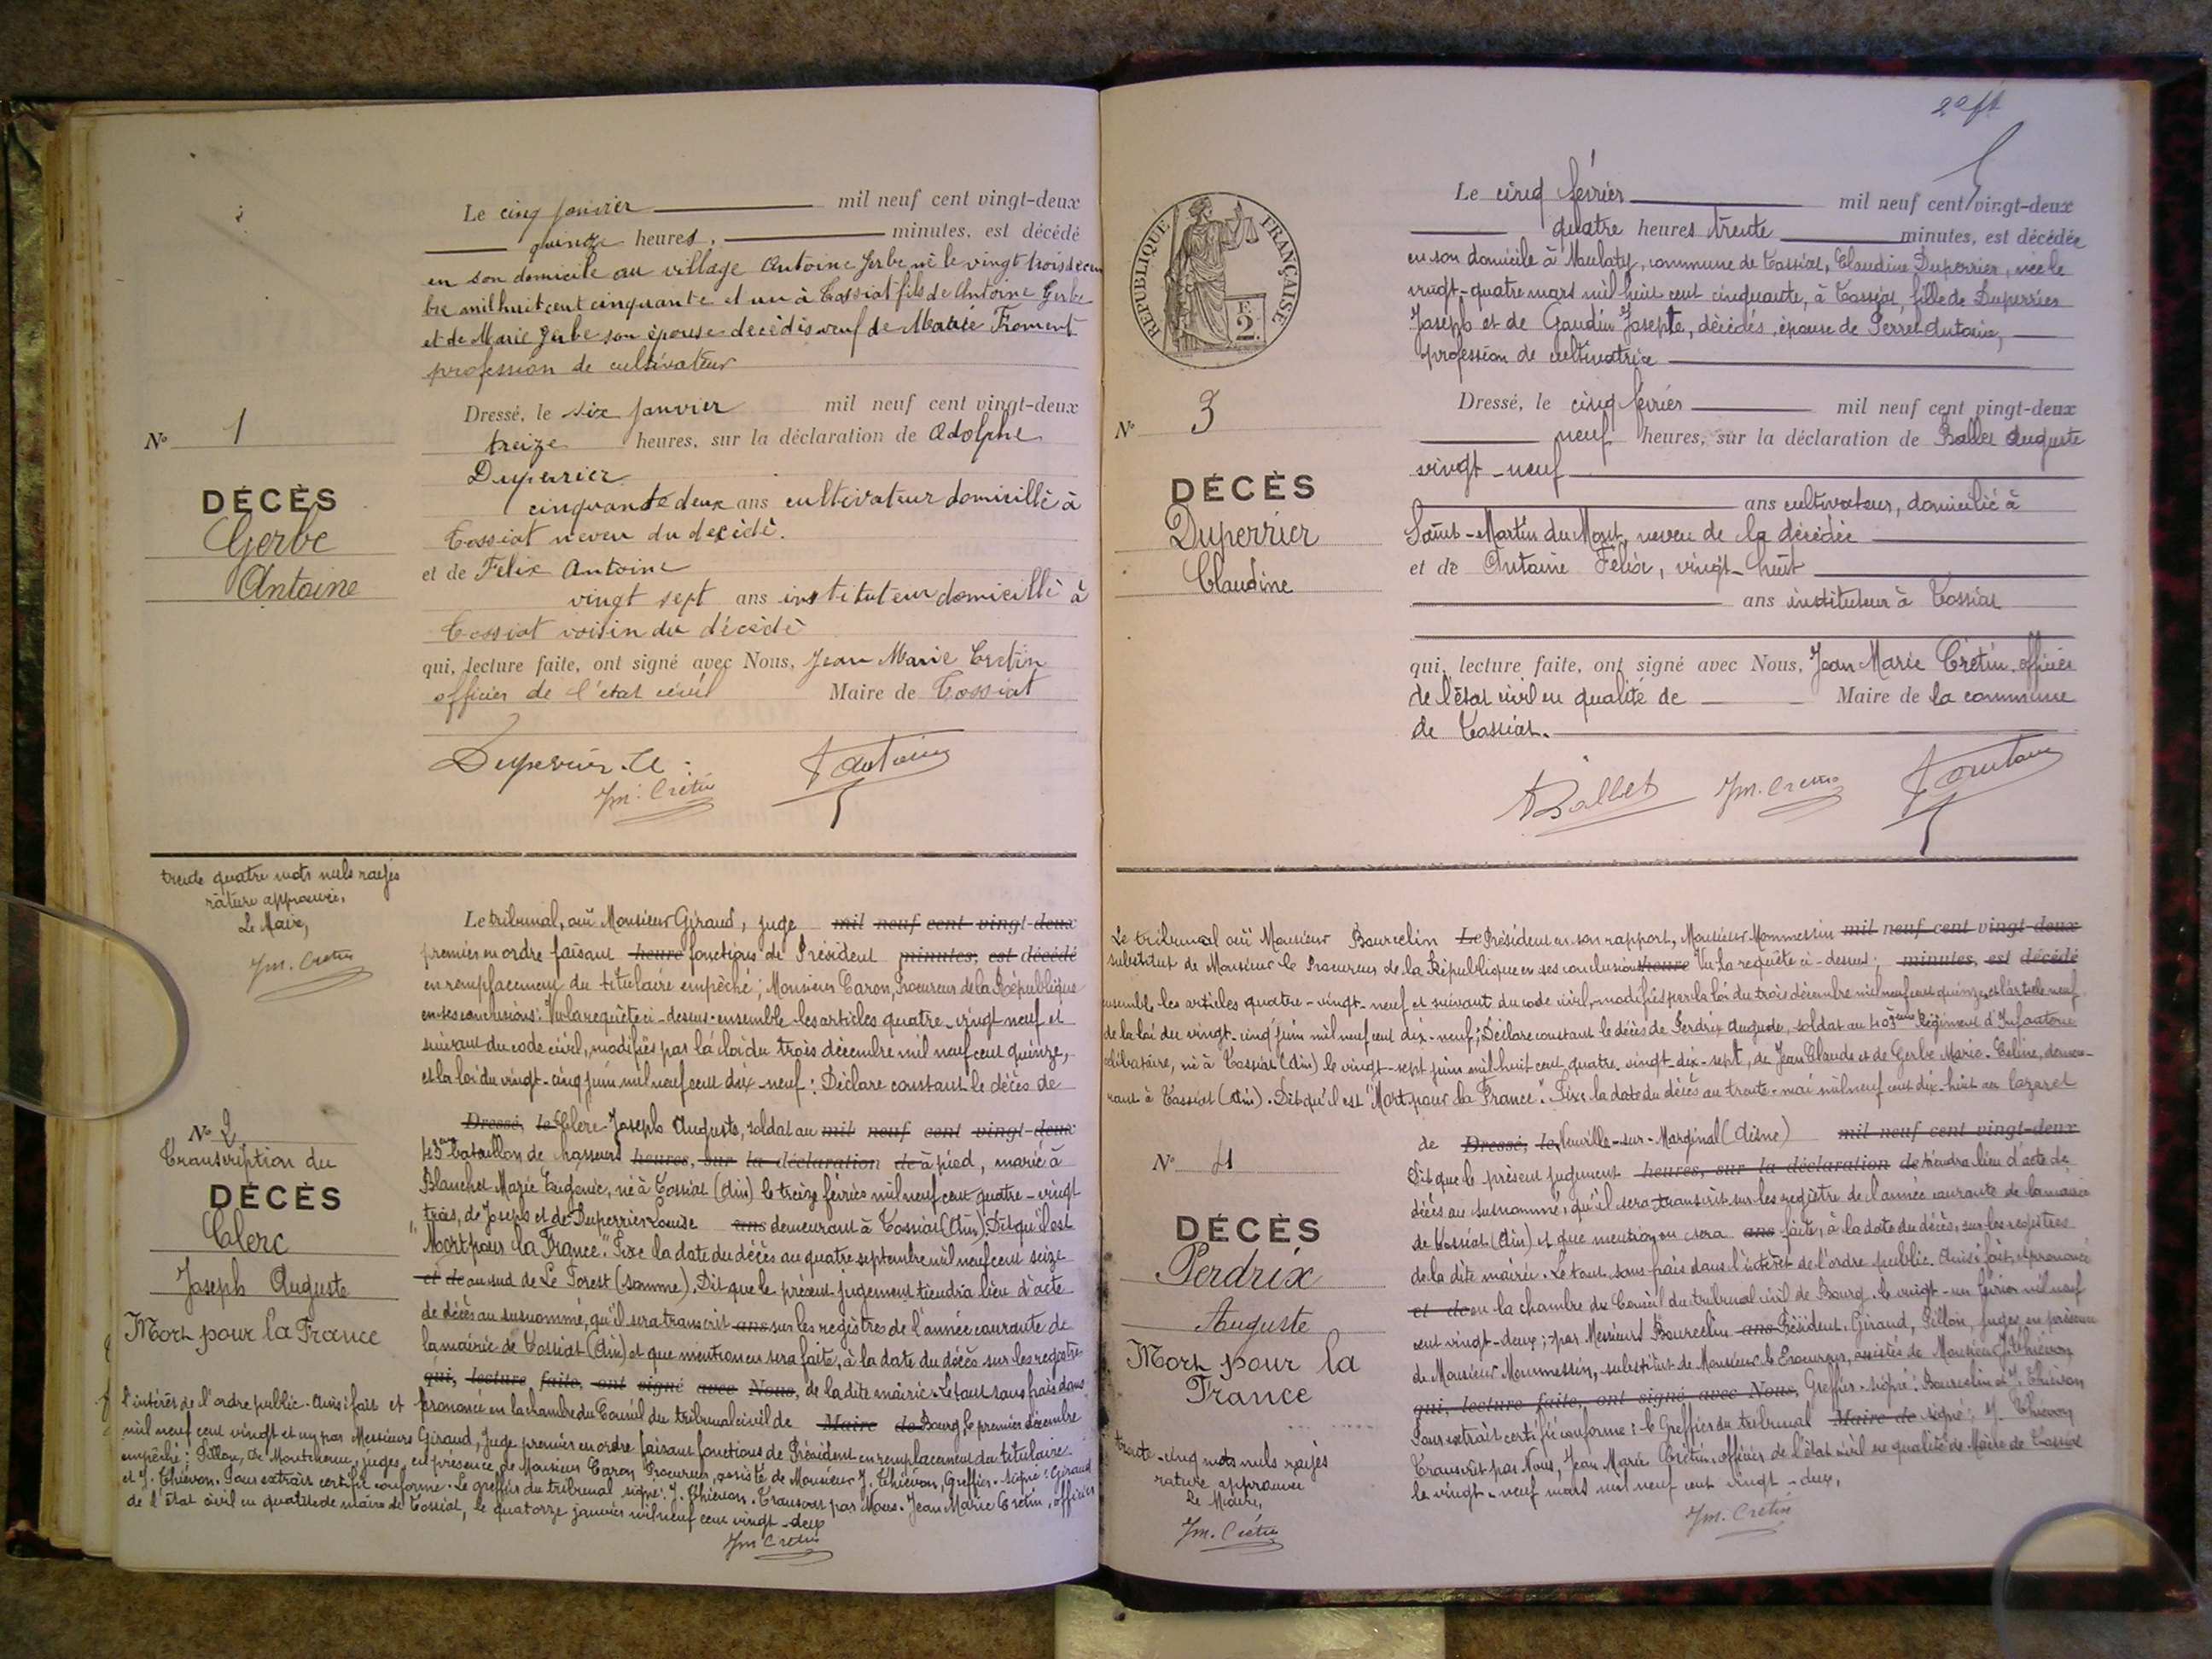 Le cinq janvier mil neuf cent vingt-deux
quinze heures, minutes, est décédé
en son domicile au village Antoine Gerbe né le vingt trois décem
bre mil huit cent cinquante et un à Tossiat fils de Antoine Gerbe
et de Marie Gerbe son épouse décédés veuf de Marie Froment
profession de cultivateur
Nº 1
DÉCÈS
Gerbe
Antoine
Dressé, le six janvier mil neuf cent vingt-deux
treize heures, sur la déclaration de Adolphe
Duperrier
cinquante deux ans cultivateur domicillé à
Tossiat neveu du décédé.
et de Félix Antoine
vingt sept ans instituteur domicillé à
Tossiat voisin du décédé
qui, lecture faite, ont signé avec Nous, Jean Marie Cretin
officier de l'état civil Maire de Tossiat
Duperrier A
Jm. Cretin
F Antoine
trente quatre mots nuls rayés
rature approuvée.
Le Maire,
Jm. Cretin
Nº 2
Transcription du
DÉCÈS
Clerc
Joseph Auguste
Mort pour la France
Le tribunal, ouï Monsieur Giraud, juge mil neuf cent vingt-deux
premier en ordre faisant heure fonctions de Président minutes, est décédé
en remplacement du titulaire empêché; Monsieur Caron, Procureur de la République
en ses conclusions: Vu la requête ci-dessus ensemble les articles quatre-vingt neuf et
suivant du code civil, modifiés par la loi du trois décembre mil neuf cent quinze,
et la loi du vingt-cinq juin mil neuf cent dix-neuf: Déclare constant le décès de
Dressé, le Clerc Joseph Auguste, soldat au mil neuf cent vingt-deux
43ème bataillon de chasseurs heures, sur la déclaration de à pied, marié à
Blanchet Marie Eugénie, né à Tossiat (Ain) le treize février mil neuf cent quatre-vingt
trois, de Joseph et de Duperrier Louise ans demeurant à Tossiat (Ain). Dit qu'il est
"Mort pour la France". Fixe la date du décès au quatre septembre mil neuf cent seize
et de au sud de Le Forest (Somme). Dit que le présent jugement tiendra lieu d'acte
de décès au susnommé, qu'il sera transcrit ans sur les registres de l'année courante de
la mairie de Tossiat (Ain) et que mention en sera faite, à la date du décès sur les registres
qui, lecture faite, ont signé avec Nous, de la dite mairie. Le tout sans frais dans
l'intérêt de l'ordre public. Ainsi fait et prononcé en la chambre du Conseil du tribunal civil de Maire de Bourg, le premier décembre
mil neuf cent vingt et un par Messieurs Giraud, Juge premier en ordre faisant fonctions de Président en remplacement du titulaire
empêché; Pillon, De juges, en présence de Monsieur Caron Procureur, assisté de Monsieur J. Thiévon, Greffier. signé: Giraud
et J. Thiévon. Pour extrait certifié conforme. Le greffier du tribunal signé: J. Thiévon. Transcrit par Nous. Jean Marie Cretin, officier
de l'état civil en qualité de maire de Tossiat, le quatorze janvier mil neuf cent vingt-deux
Jm Cretin
RÉPUBLIQUE FRANÇAISE
2
Le cinq février mil neuf cent vingt-deux
quatre heures trente minutes, est décédée
en son domicile à Moulaty, commune de Tossiat, Claudine Duperrier, née le
vingt-quatre mars mil huit cent cinquante, à Tossiat, fille de Duperrier
Joseph et de Gaudin Josepte, décédés, épouse de Perret Antoine,
profession de cultivatrice
Nº 3
DÉCÈS
Duperrier
Claudine
Dressé, le cinq février mil neuf cent vingt-deux
neuf heures, sur la déclaration de Ballet Auguste
vingt-neuf
ans cultivateur, domicilié à
Saint-Martin du Mont, neveu de la décédée
et de Antoine Félix, vingt-huit
ans instituteur à Tossiat
qui, lecture faite, ont signé avec Nous, Jean Marie Cretin, officier
de l'état civil en qualité de Maire de la commune
de Tossiat.
A Ballet
Jm. Cretin
F Antoine
Le tribunal ouï Monsieur Bourcelin Le Président en son rapport, Monsieur Mommessin mil neuf cent vingt-deux
substitut de Monsieur le Procureur de la République en ses conclusions heure Vu la requête ci-dessus; minutes, est décédé
ensemble les articles quatre-vingt-neuf et suivant du code civil, modifiés par la loi du trois décembre mil neuf cent quinze, et l'article neuf
de la loi du vingt-cinq juin mil neuf cent dix-neuf; Déclare constant le décès de Perdrix Auguste, soldat au 403ème Régiment d'Infanterie
célibataire, né à Tossiat (Ain) le vingt-sept juin mil huit cent quatre-vingt-dix-sept, de Jean Claude et de Gerbe Marie-Céline, demeu-
rant à Tossiat (Ain). Dit qu'il est "Mort pour la France". Fixe la date du décès au trente mai mil neuf cent dix-huit au lazaret
de Dressé, le Neuville-sur-Marginal (Aisne) mil neuf cent vingt-deux
Dit que le présent jugement heures, sur la déclaration de tiendra lieu d'acte de
décès au susnommé, qu'il sera transcrit sur les registre de l'année courante de la mairie
de Tossiat (Ain) et que mention en sera ans faite, à la date du décès, sur les registres
de la dite mairie. Le tout sans frais dans l'intérêt de l'ordre public. Ainsi fait et prononcé
et de en la chambre du Conseil du tribunal civil de Bourg, le vingt-un février mil neuf
cent vingt-deux; par Messieurs Bourcelin ans Président, Giraud, Pillon, juges en présence
de Monsieur Mommessin, substitut de Monsieur le Procureur, assistés de Monsieur J. Thiévon
qui, lecture faite, ont signé avec Nous, Greffier. signé: Bourcelin et J. Thiévon
Pour extrait certifié conforme: le Greffier du tribunal Maire de signé: J. Thiévon
Transcrit par Nous, Jean Marie Cretin, officier de l'état civil en qualité de Maire de Tossiat
le vingt-neuf mars mil neuf cent vingt-deux,
Jm. Cretin
Nº 4
DÉCÈS
Perdrix
Auguste
Mort pour la
France
trente-cinq mots nuls rayés
rature approuvée
Le Maire,
Jm. Cretin